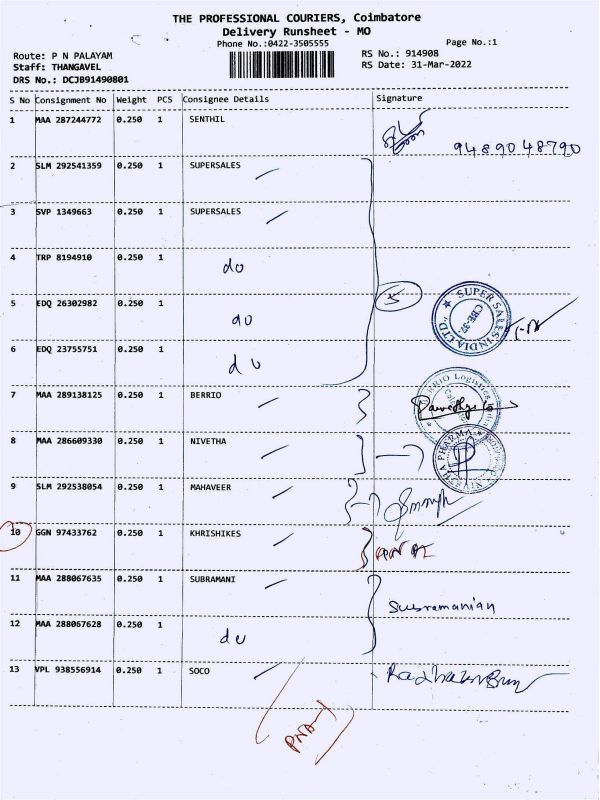 THE PROFESSIONAL COURIERS, Coimbatore
Delivery Runsheet - MO
Phone No.:0422-3505555
Page No.:1
Route: P N PALAYAM
RS No.: 914908
Staff: THANGAVEL
RS Date: 31-Mar-2022
DRS No.: DCJB91490801
S No Consignment No Weight PCS Consignee Details Signature
1 MAA 287244772 0.250 1 SENTHIL
9489048790
2 SLM 292541359 0.250 1 SUPERSALES
3 SVP 1349663 0.250 1 SUPERSALES
4 TRP 8194910 0.250 1
do
5 EDQ 26302982 0.250 1
do
5
SUPER SALES INDIA LTD
CBE-37.
6 EDQ 23755751 0.250 1
do
7 MAA 289138125 0.250 1 BERRIO
BERRIO Logistics
8 MAA 286609330 0.250 1 NIVETHA
NIVETHA PHARMA
9 SLM 292538054 0.250 1 MAHAVEER
10 GGN 97433762 0.250 1 KHRISHIKES
11 MAA 288067635 0.250 1 SUBRAMANI
Subramanian
12 MAA 288067628 0.250 1
do
13 VPL 938556914 0.250 1 SOCO